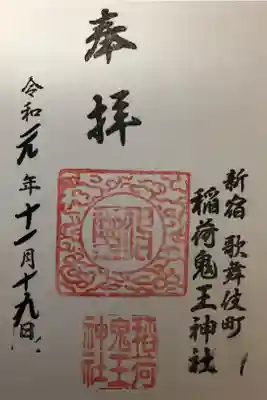 新宿 歌舞伎町
稲荷鬼王神社
奉拝
令和元年十一月十九日
稲荷
鬼王
神社